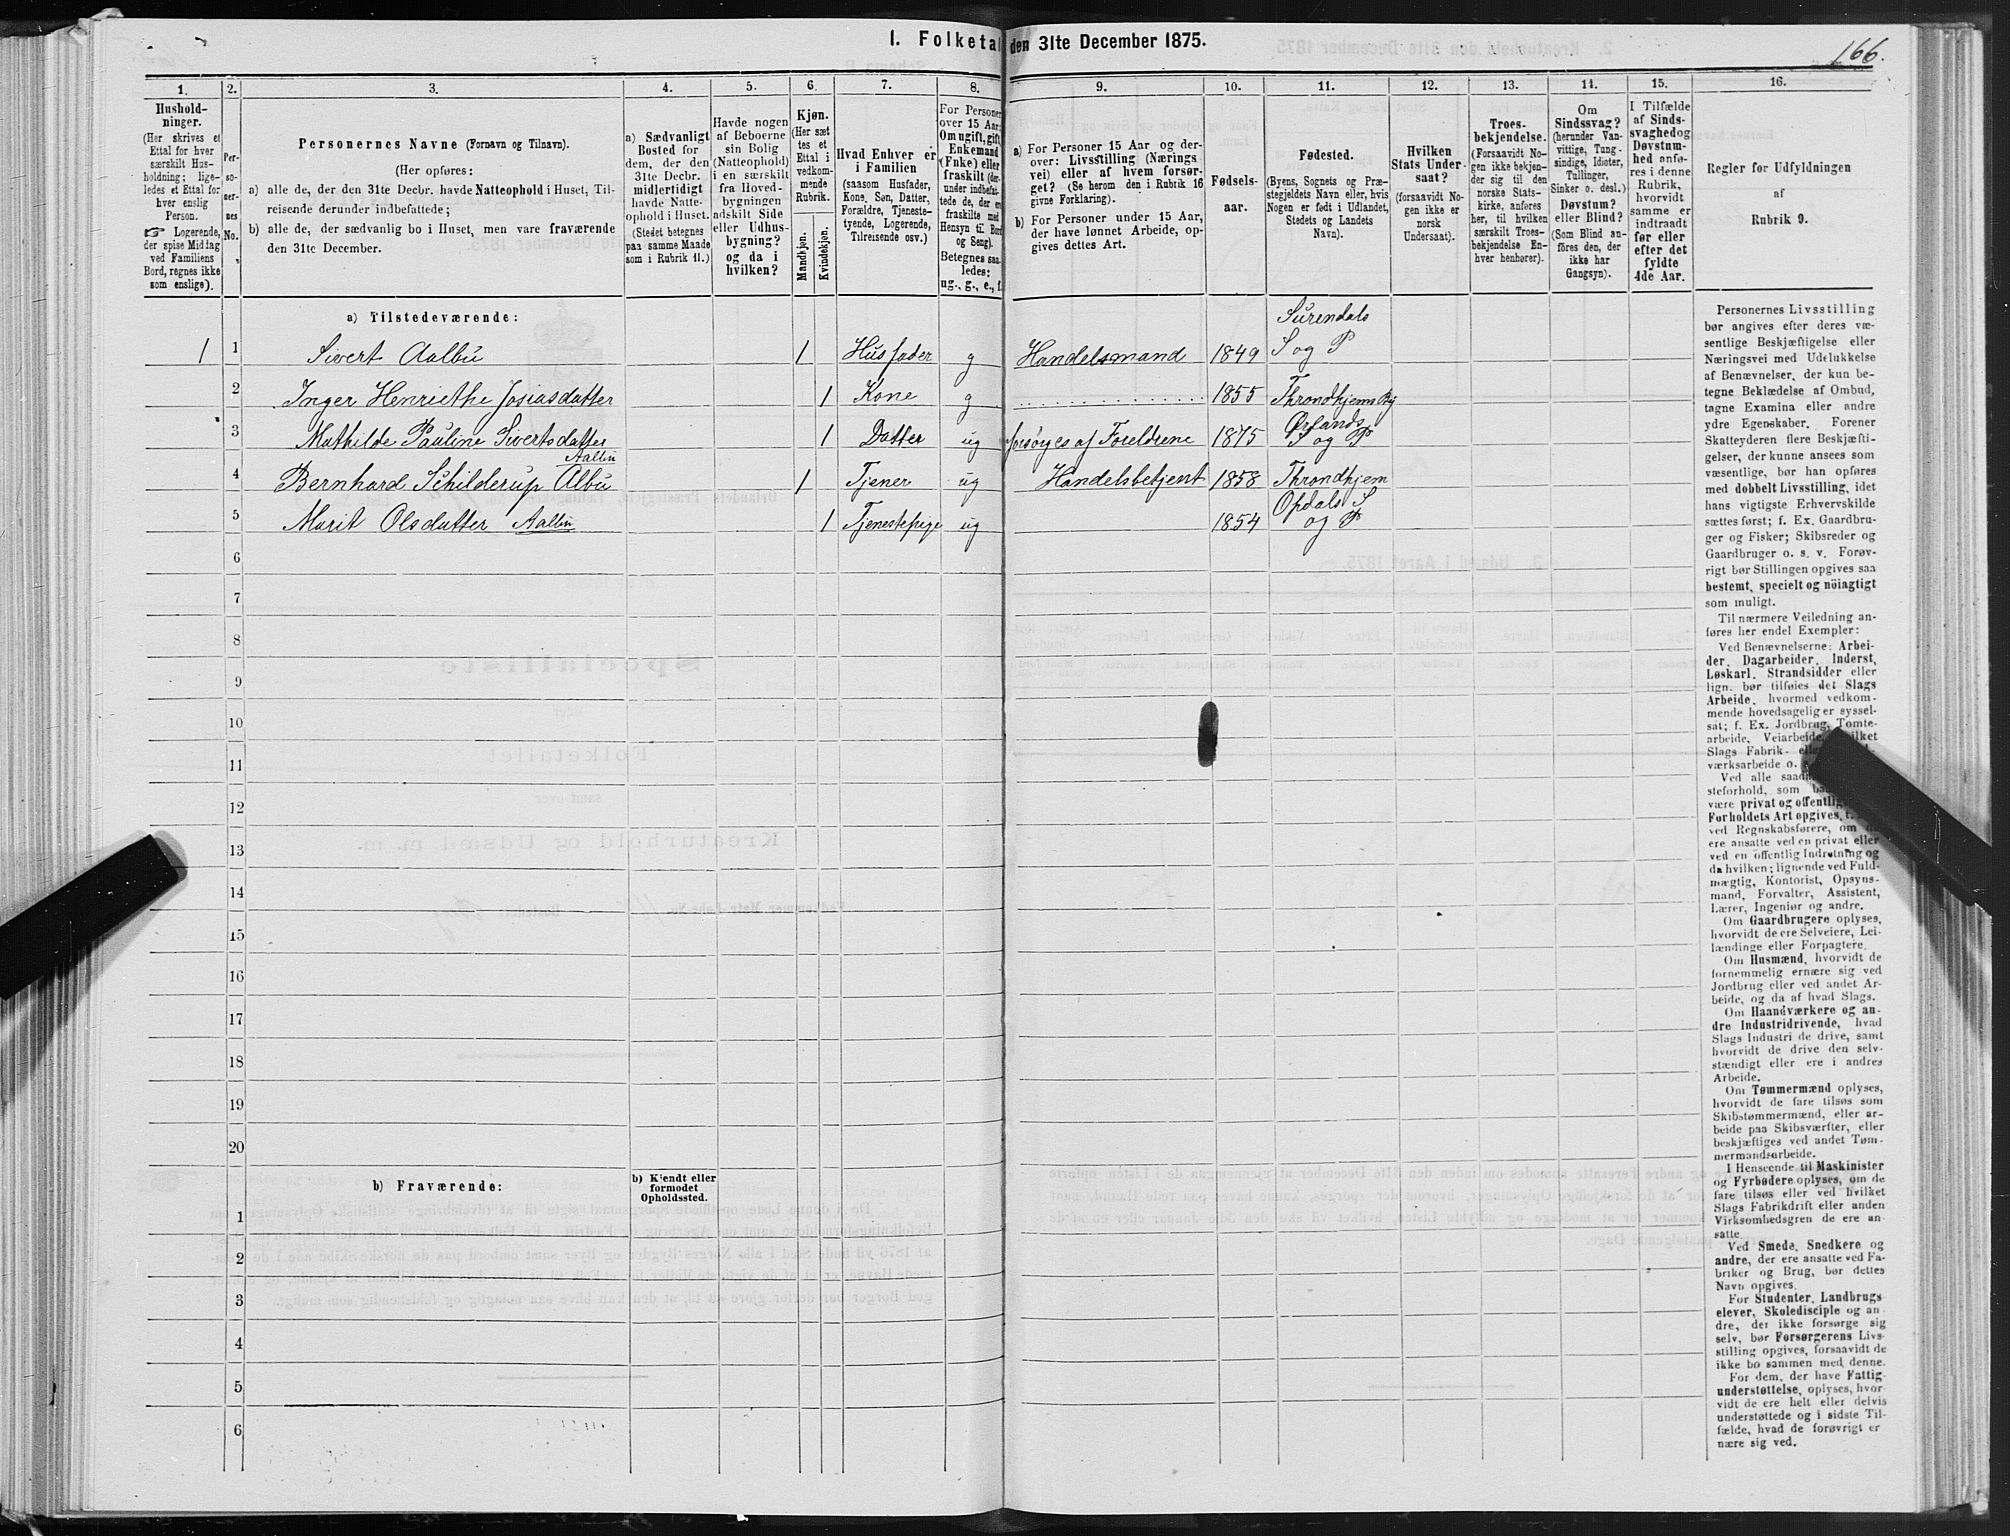 I. Folketal den 31te December 1875.
166.
1. 2. 3. 4. 5. 6. 7. 8. 9. 10. 11. 12. 13. 14. 15. 16.
Hushold-
ninger.
(Her skrives et
Ettal for hver
særskilt Hus-
holdning; lige-
ledes et Ettal for
hver enslig
Person.
☞ Logerende,
der spise Middag
ved Familiens
Bord, regnes ikke
som enslige).
Per-
so-
ner-
nes
No.
Personernes Navne (Fornavn og Tilnavn).
(Her opføres:
a) alle de, der den 31te Decbr. havde Natteophold i Huset, Til-
reisende derunder indbefattede;
b) alle de, der sædvanlig bo i Huset, men vare fraværende
den 31te December.
a) Sædvanligt
Bosted for
dem, der den
31te Decbr.
midlertidigt
havde Natte-
ophold i Huset.
(Stedet betegnes
paa samme Maade
som i Rubrik 11.)
Havde nogen
af Beboerne
sin Bolig
(Natteophold)
i en særskilt
fra Hoved-
bygningen
adskilt Side
eller Udhus-
bygning?
og da i
hvilken?
Kjøn.
(Her sæt
tes et
Ettal i
vedkom-
mende
Rubrik.
Mandkjøn.
Kvindekjøn.
Hvad Enhver er
i Familien
(saasom Husfader,
Kone, Søn, Datter,
Forældre, Tjeneste-
tyende, Logerende,
Tilreisende osv.)
For Personer
over 15 Aar:
Om ugift, gift,
Enkemand
(Enke) eller
fraskilt (der-
under indbefat-
tede de, der er
fraskilte med
Hensyn til Bord
og Seng).
Betegnes saa-
ledes:
ug., g., e., f.
a) For Personer 15 Aar og der-
over: Livsstilling (Nærings
vei) eller af hvem forsør-
get? (Se herom den i Rubrik 16
givne Forklaring).
b) For Personer under 15 Aar,
der have lønnet Arbeide, op-
gives dettes Art.
Fødsels-
aar.
Fødested.
(Byens, Sognets og Præ-
stegjeldets Navn eller, hvis
Nogen er født i Udlandet,
Stedets og Landets
Navn).
Hvilken
Stats Under-
saat?
(forsaavidt No-
gen ikke er
norsk
Undersaat).
Troes-
bekjendelse.
(Forsaavidt No-
gen ikke bekjen-
der sig til den
norske Stats-
kirke, anføres
her, til hvilken
særskilt Troes-
bekjendelse En-
hver henhører).
Om
Sindssvag?
(herunder Van-
vittige, Tung-
sindige, Idioter,
Tullinger,
Sinker o. desl.)
Døvstum?
eller Blind?
(Som Blind an-
føres den, der
ikke har
Gangsyn).
I Tilfælde
af Sinds-
svaghed og
Døvstum-
hed anfø-
res i denne
Rubrik,
hvorvidt
samme er
indtraadt
før eller
efter det
fyldte
4de Aar.
Regler for Udfyldningen
af
Rubrik 9.
a) Tilstedeværende:
Surendals
1 1 Sivert Aalbu 1 Husfader g Handelsmand 1849 S og P
2 Inger Henriethe Josiasdatter 1 Kone g 1855 Throndhjems By
Ørlands
3 Mathilde Pauline Sivertsdatter 1 Datter ug forsørges af Foreldrene 1875 S og P
Aalbu
4 Bernhard Schilderup Albu 1 Tjener ug Handelsbetjent 1858 Throndhjem
Opdals S
5 Marit Olsdatter Aalbu 1 Tjenestepige ug 1854 og P
6
7
8
9
10
11
12
13
14
15
16
17
18
19
20
b) Fraværende:
b) Kjendt eller
formodet
Opholdssted.
1
2
3
4
5
6
Personernes Livsstilling
bør angives efter deres væ-
sentlige Beskjæftigelse eller
Næringsvei med Udelukkelse
af Benævnelser, der kun be-
tegne Beklædelse af Ombud,
tagne Examina eller andre
ydre Egenskaber. Forener
Skatteyderen flere Beskjæfti-
gelser, der kunne ansees som
væsentlige, bør han opføres
med dobbelt Livsstilling, idet
hans vigtigste Erhvervskilde
sættes først; f. Ex. Gaardbru-
ger og Fisker; Skibsreder og
Gaardbruger o. s. v. Forøv-
rigt bør Stillingen opgives saa
bestemt, specielt og nöiagtigt
som muligt.
Til nærmere Veiledning an-
føres her endel Exempler:
Ved Benævnelserne: Arbei-
der, Dagarbeider, Inderst,
Løskarl, Strandsidder eller
lign. bør tilføies det Slags
Arbeide, hvormed vedkom-
mende hovedsagelig er syssel-
sat; f. Ex. Jordbrug, Tomte-
arbeide, Veiarbeide,
Slags Fabrik-
værksarbeide o.
Ved alle
steforhold, som
være privat og
Forholdets Art opgives,
ved Regnskabsførere, om
ere ansatte ved en privat eller
ved en offentlig Indretning og
da hvilken; lignende ved Fuld-
mægtig, Kontorist, Opsyns-
mand, Forvalter, Assistent,
Lærer, Ingeniør og andre.
Om Gaardbrugere oplyses,
hvorvidt de ere Selveiere, Lei-
lændinge eller Forpagtere.
Om Husmænd, hvorvidt de
fornemmelig ernære sig ved
Jordbrug eller ved andet Ar-
beide, og da af hvad Slags.
Om Haandværkere og an-
dre Industridrivende, hvad
Slags Industri de drive, samt
hvorvidt de drive den selv-
stændigt eller ere i andres
Arbeide.
Om Tømmermænd oplyses,
hvorvidt de fare tilsøs som
Skibstømmermænd, eller ar-
beide paa Skibsværfter, eller
beskjæftiges ved andet Tøm-
mermandsarbeide.
I Henseende til Maskinister
og Fyrbødere oplyses, om de
fare tilsøs eller ved hvilket
Slags Fabrikdrift eller anden
Virksomhedsgren de ere an-
satte.
Ved Smede, Snedkere og
andre, der ere ansatte ved Fa-
briker og Brug, bør dettes
Navn opgives.
For Studenter, Landbrugs
elever, Skoledisciple og an-
dre, der ikke forsørge sig
selv, bør Forsørgerens Livs-
stilling opgives, forsaavidt de
ikke bo sammen med denne.
For dem, der have Fattig-
understøttelse, oplyses, hvor-
vidt de ere helt eller delvis
understøttede og i sidste Til-
fælde, hvad de forøvrigt er
nære sig ved.